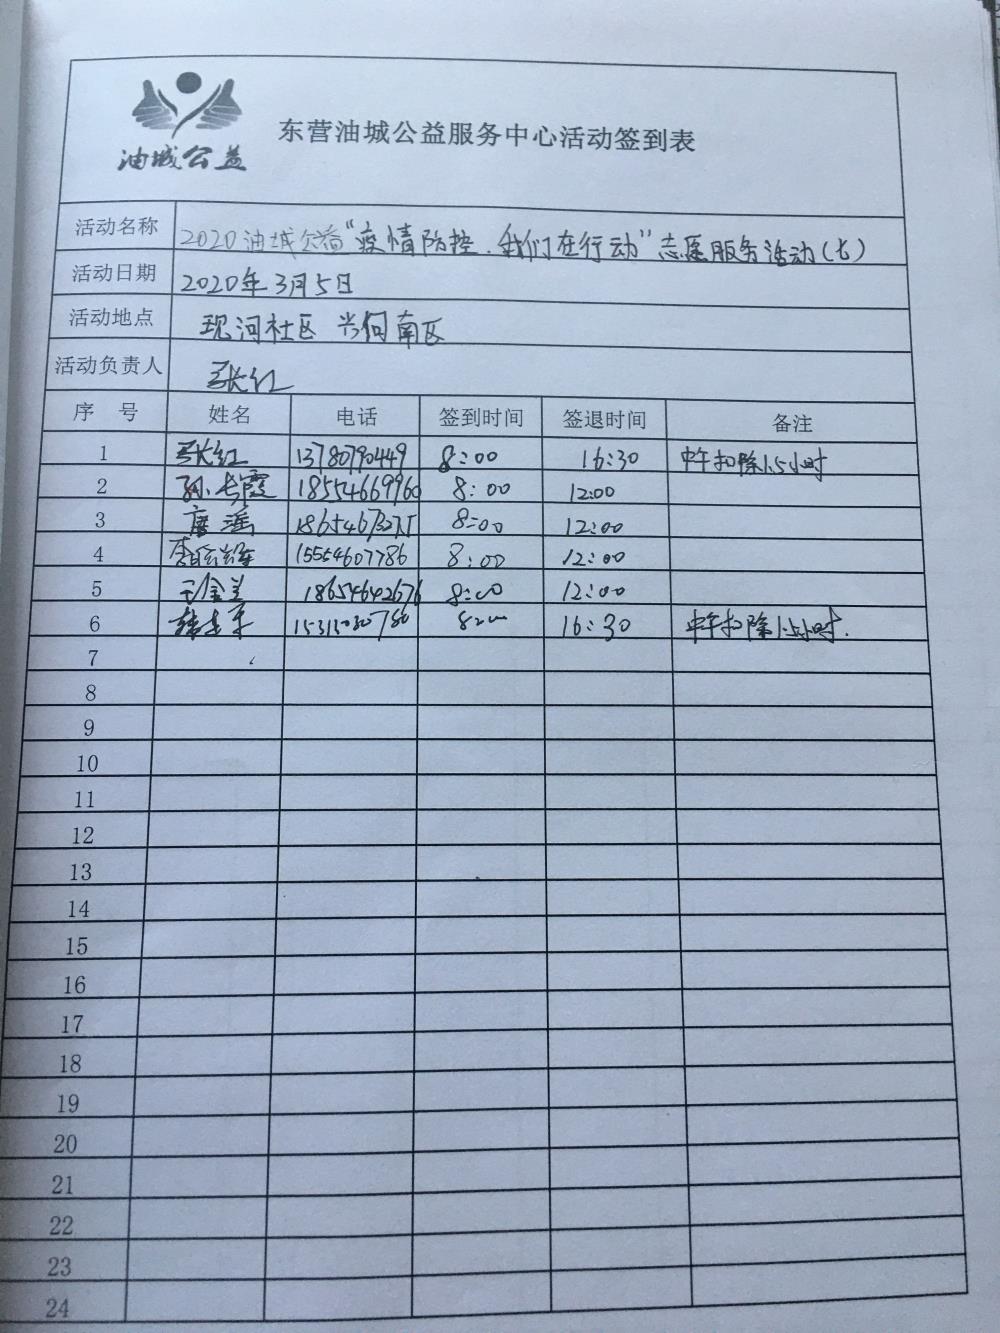 油城公益
东营油城公益服务中心活动签到表
活动名称 2020油城公益“疫情防控.我们在行动”志愿服务活动(七)
活动日期 2020年3月5日
活动地点 现河社区 兴河南区
活动负责人 张红
序号 姓名 电话 签到时间 签退时间 备注
1 张红 13780790449 8:00 16:30 中午扣除1.5小时
2 孙长霞 18554669960 8:00 12:00
3 唐瑶 8:00 12:00
4 15554607786 8:00 12:00
5 王金兰 18654642676 8:00 12:00
6 8:00 16:30 中午扣除1.5小时.
7
8
9
10
11
12
13
14
15
16
17
18
19
20
21
22
23
24